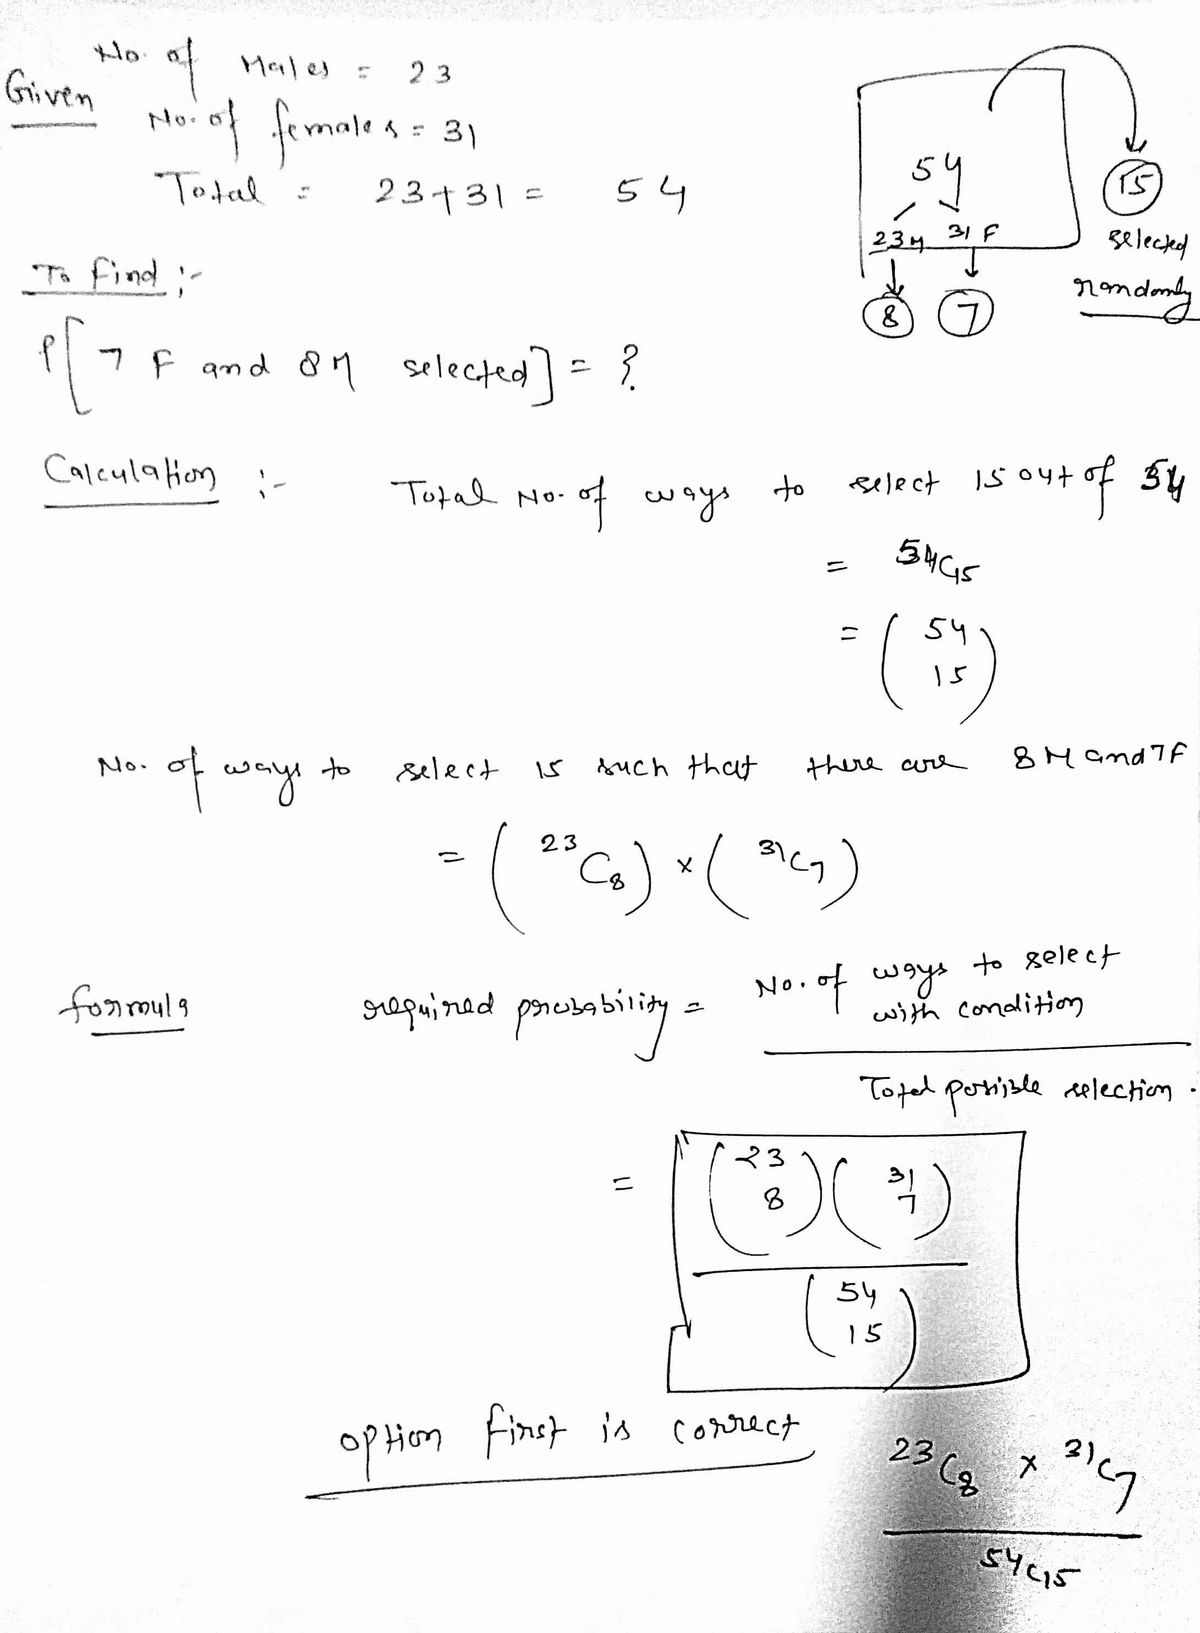 No. of Males = 23
Given
No. of females = 31
Total = 23+31 = 54
54
23M 31 F
8 7
15
selected
randomly
To find :-
P[7 F and 8M selected] = ?
Calculation :- Total No. of ways to select 15 out of 54
= 54C15
= (54
15)
No. of ways to select 15 such that there are 8 M and 7F
= (23C8) × (31C7)
formula required probability = No. of ways to select
with condition
Total possible selection.
= (23
8)(31
7)
(54
15)
option first is correct
23C8 × 31C7
54C15